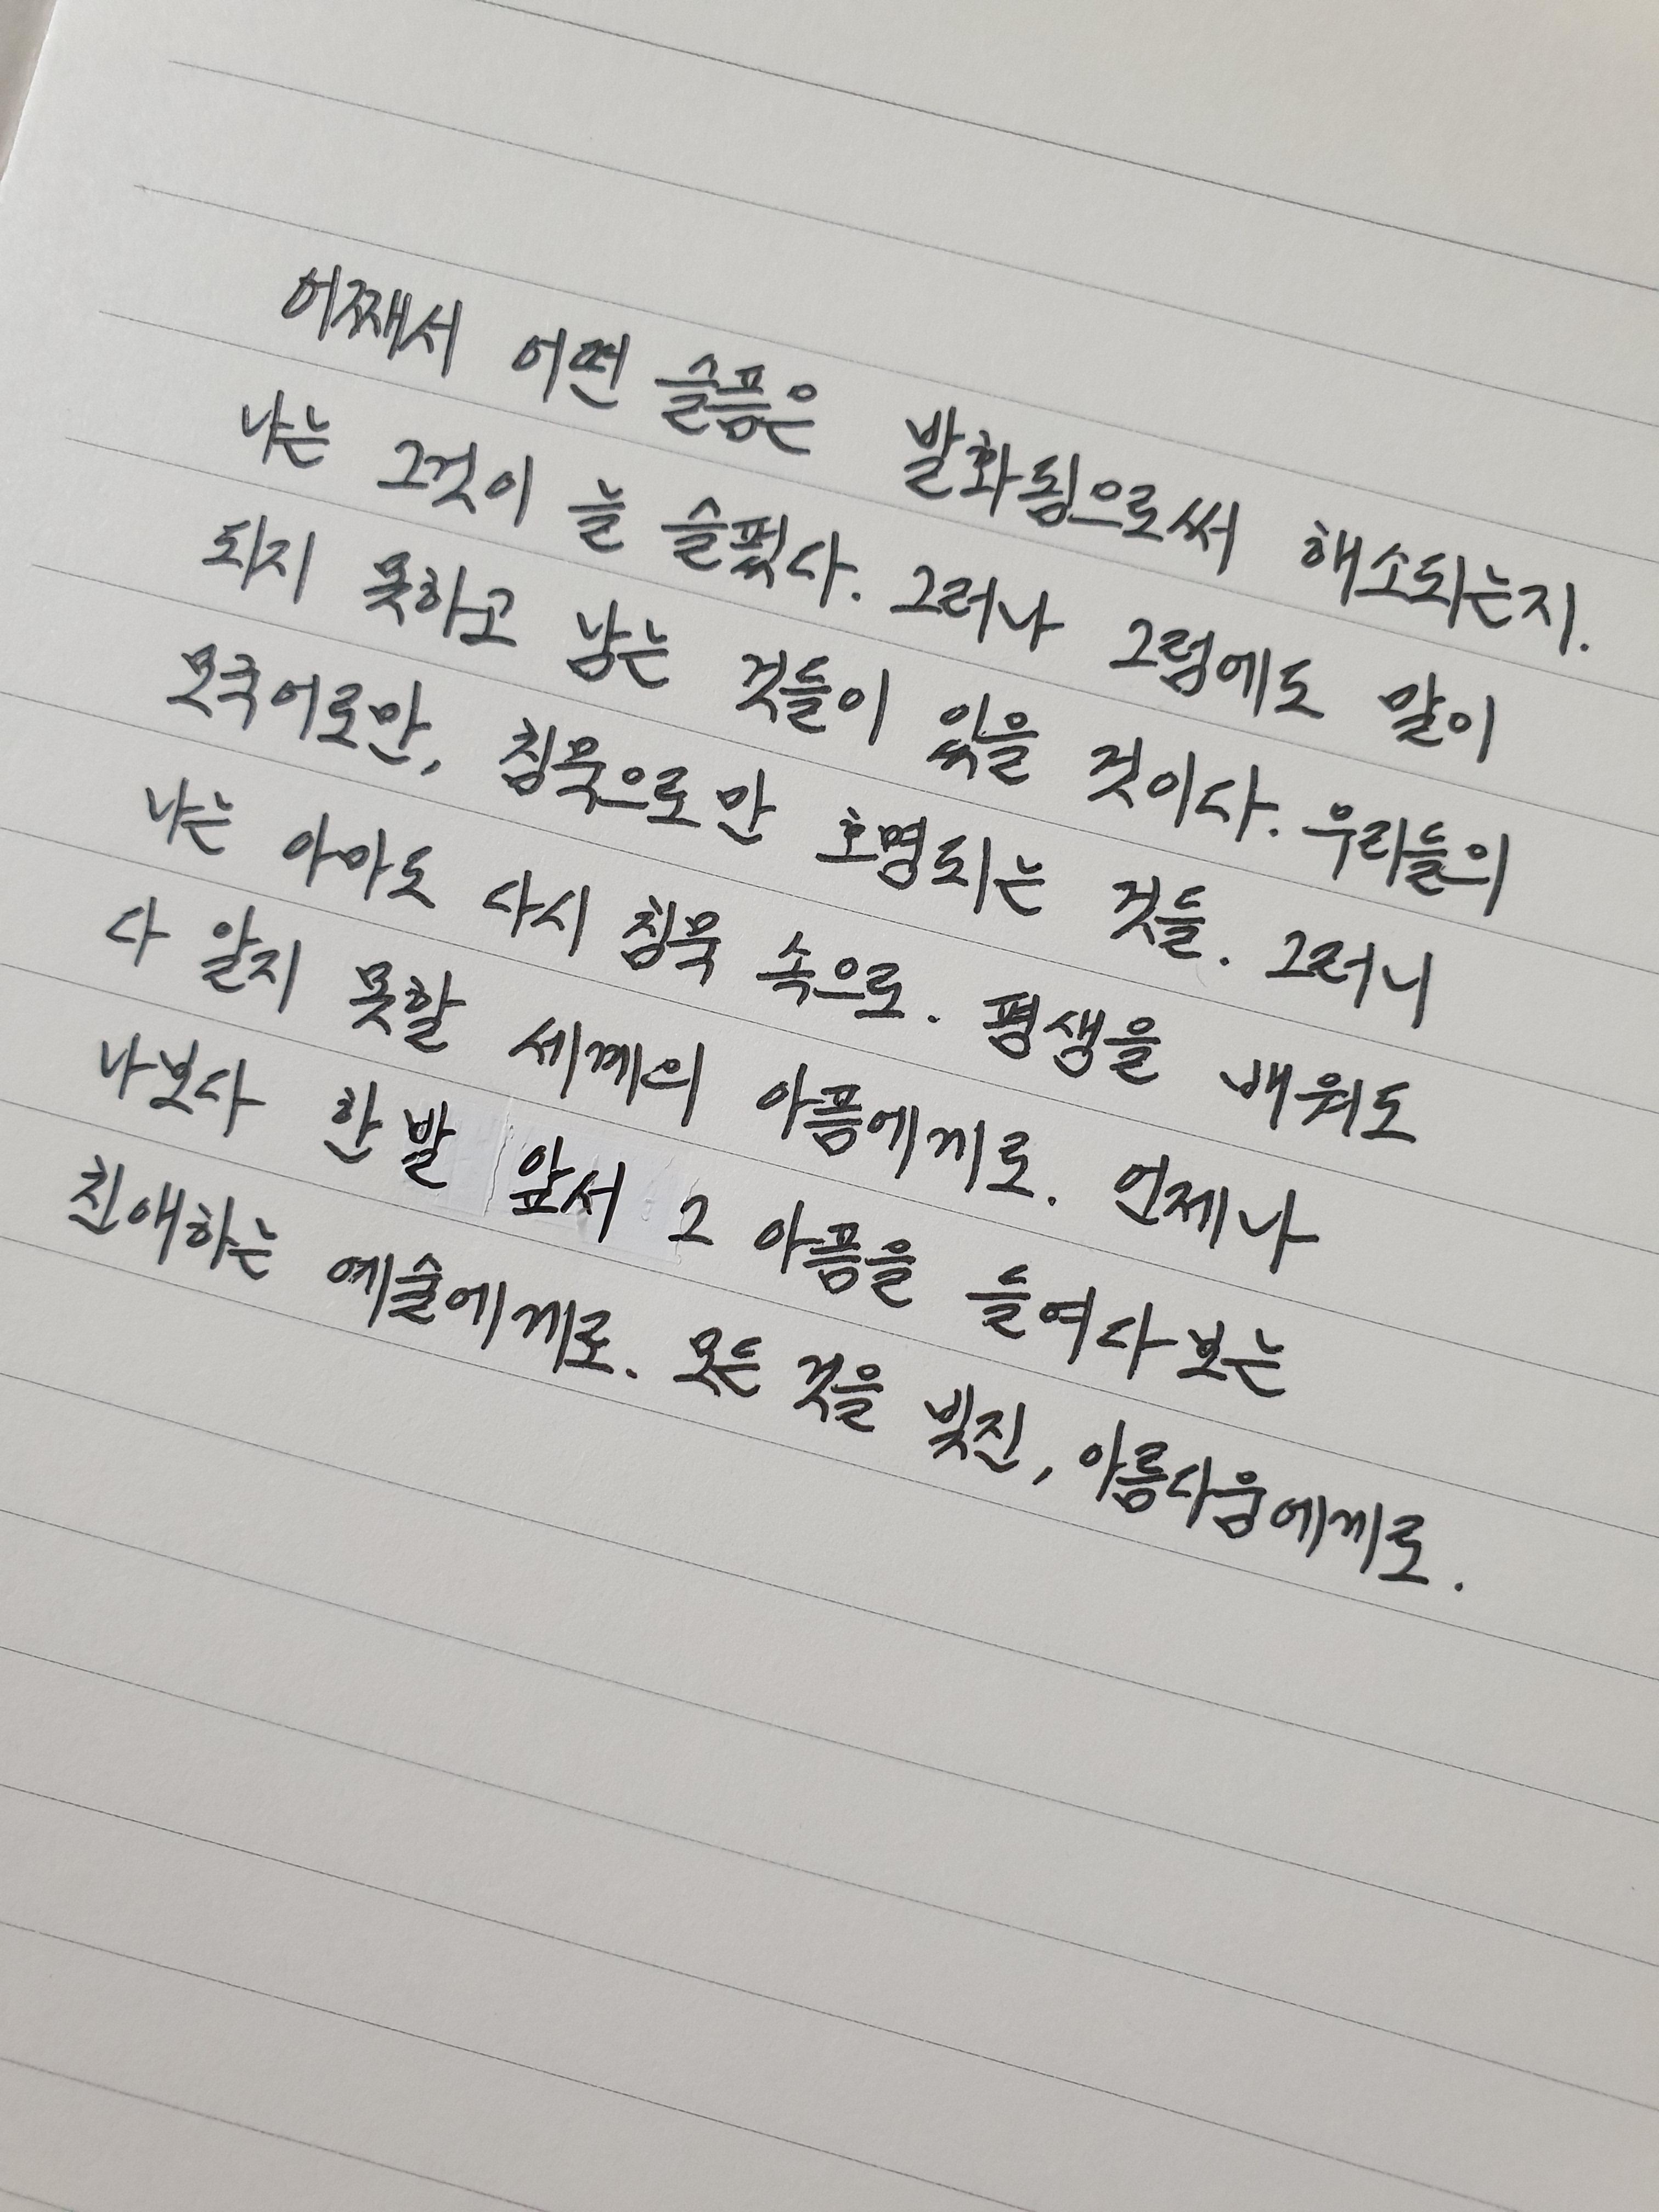 어째서 어떤 슬픔은 발화됨으로써 해소되는지.
나는 그것이 늘 슬펐다. 그러나 그럼에도 말이
되지 못하고 남는 것들이 있을 것이다. 우리들의
모국어로만, 침묵으로만 호명되는 것들. 그러니
나는 아마도 다시 침묵 속으로. 평생을 배워도
다 알지 못할 세계의 아픔에게로. 언제나
나보다 한 발 앞서 그 아픔을 들여다보는
친애하는 예술에게로. 모든 것을 빚진, 아름다움에게로.